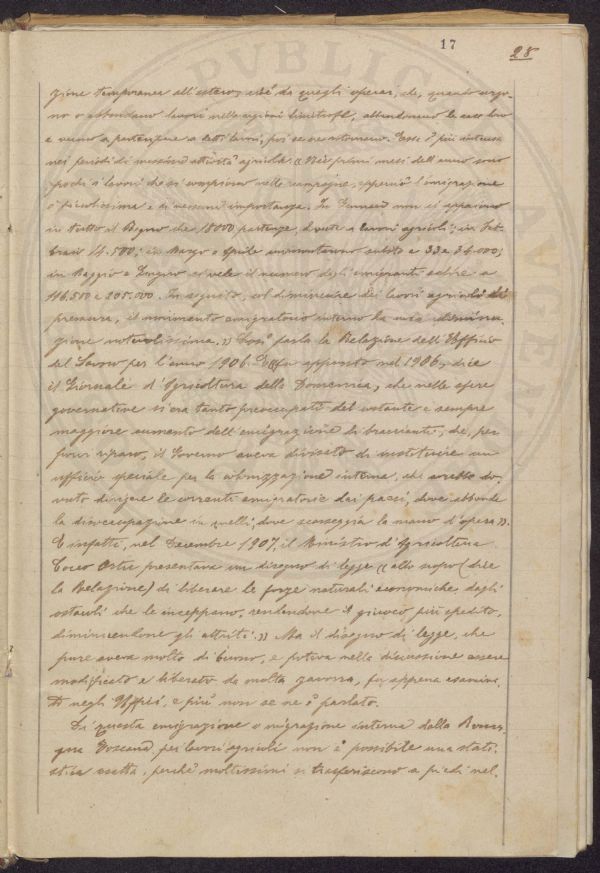 17
28
zione temporanea all'estero, cioè da quegli operai, che, quando sorgo-
no o abbondano lavori nelle regioni limitrofe, abbandonano le case loro
e vanno a partecipare a detti lavori, poi se ne ritornano. Essa è più intensa
nei periodi di massima attività agricola. « Nei primi mesi dell'anno sono
pochi i lavori che si compiono nelle campagne, epperciò l'emigrazione
è piccolissima e di nessuna importanza. In Gennaio non si appariscono
in tutto il Regno che 18000 partenze, dovute a lavori agricoli; in Feb-
braio 14.500; in Marzo e Aprile aumentarono subito a 33 e 34.000;
in Maggio e Giugno si vide il numero degli emigranti salire a
116.500 e 205.000. In seguito, col diminuire dei lavori agricoli di
premura, il movimento emigratorio interno ha una diminu-
zione notevolissima. » Così parla la Relazione dell'Ufficio
del Lavoro per l'anno 1906. E fu appunto nel 1906, dice
il Giornale d'Agricoltura della Domenica, che nelle sfere
governative si era tanto preoccupati del costante e sempre
maggiore aumento dell'emigrazione di braccianti, che, per
porvi riparo, il Governo aveva divisato di costituire un
ufficio speciale per la colonizzazione interna, che avrebbe do-
vuto dirigere le correnti emigratorie dai paesi, dove abbonda
la disoccupazione in quelli, dove scarseggia la mano d'opera ».
E infatti, nel Decembre 1907, il Ministro d'Agricoltura
Cocco Ortu presentava un disegno di legge « allo scopo (dice
la Relazione) di liberare le forze naturali economiche dagli
ostacoli che le inceppano, rendendone il giuoco più spedito,
diminuendone gli attriti. » Ma il disegno di legge, che
pure aveva molto di buono, e poteva nella discussione essere
modificato e liberato da molta zavorra, fu appena esamina-
to negli Uffici, e più non se ne è parlato.
Di questa emigrazione o migrazione interna dalla Roma-
gna Toscana per lavori agricoli non è possibile una stati-
stica esatta, perchè moltissimi si trasferiscono a piedi nel-